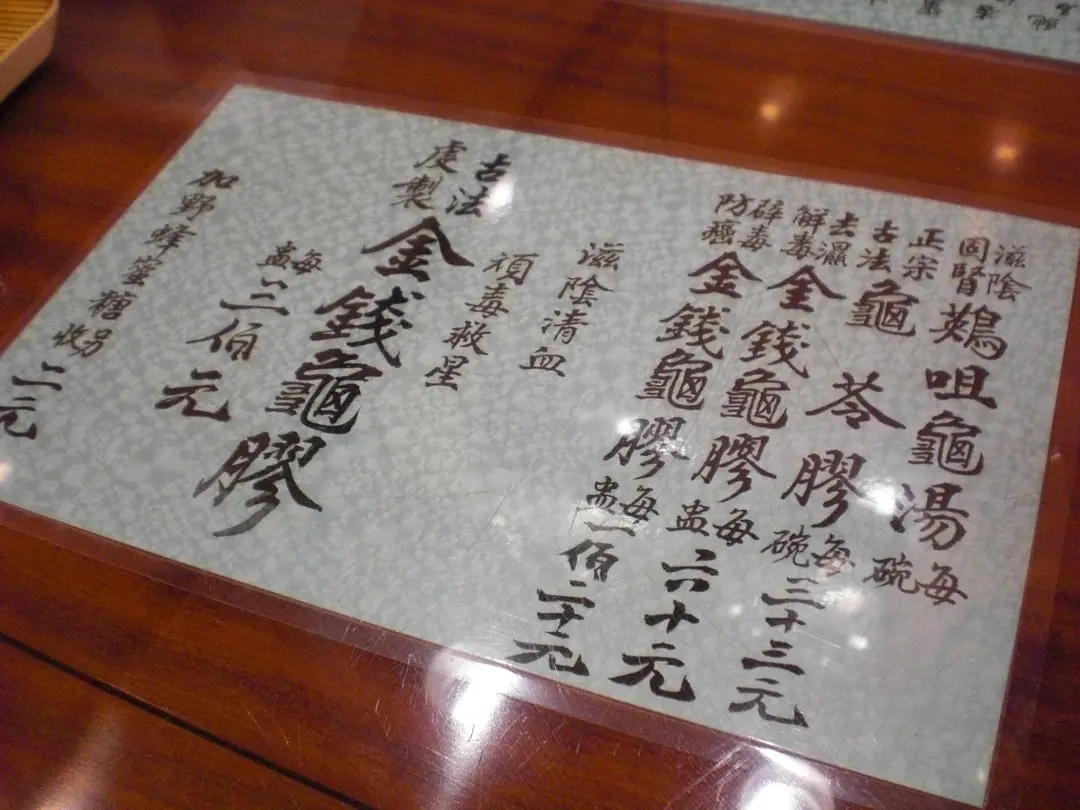 滋陰固腎鷀咀龜湯每碗
正宗古法龜苓膠每碗三十三元
去濕解毒金錢龜膠每盅六十元
辟毒防癌金錢龜膠每盅一佰二十元
滋陰清血
頑毒救星
古法虔製金錢龜膠
每盅三佰元
加野蜂蜜糖另收二元